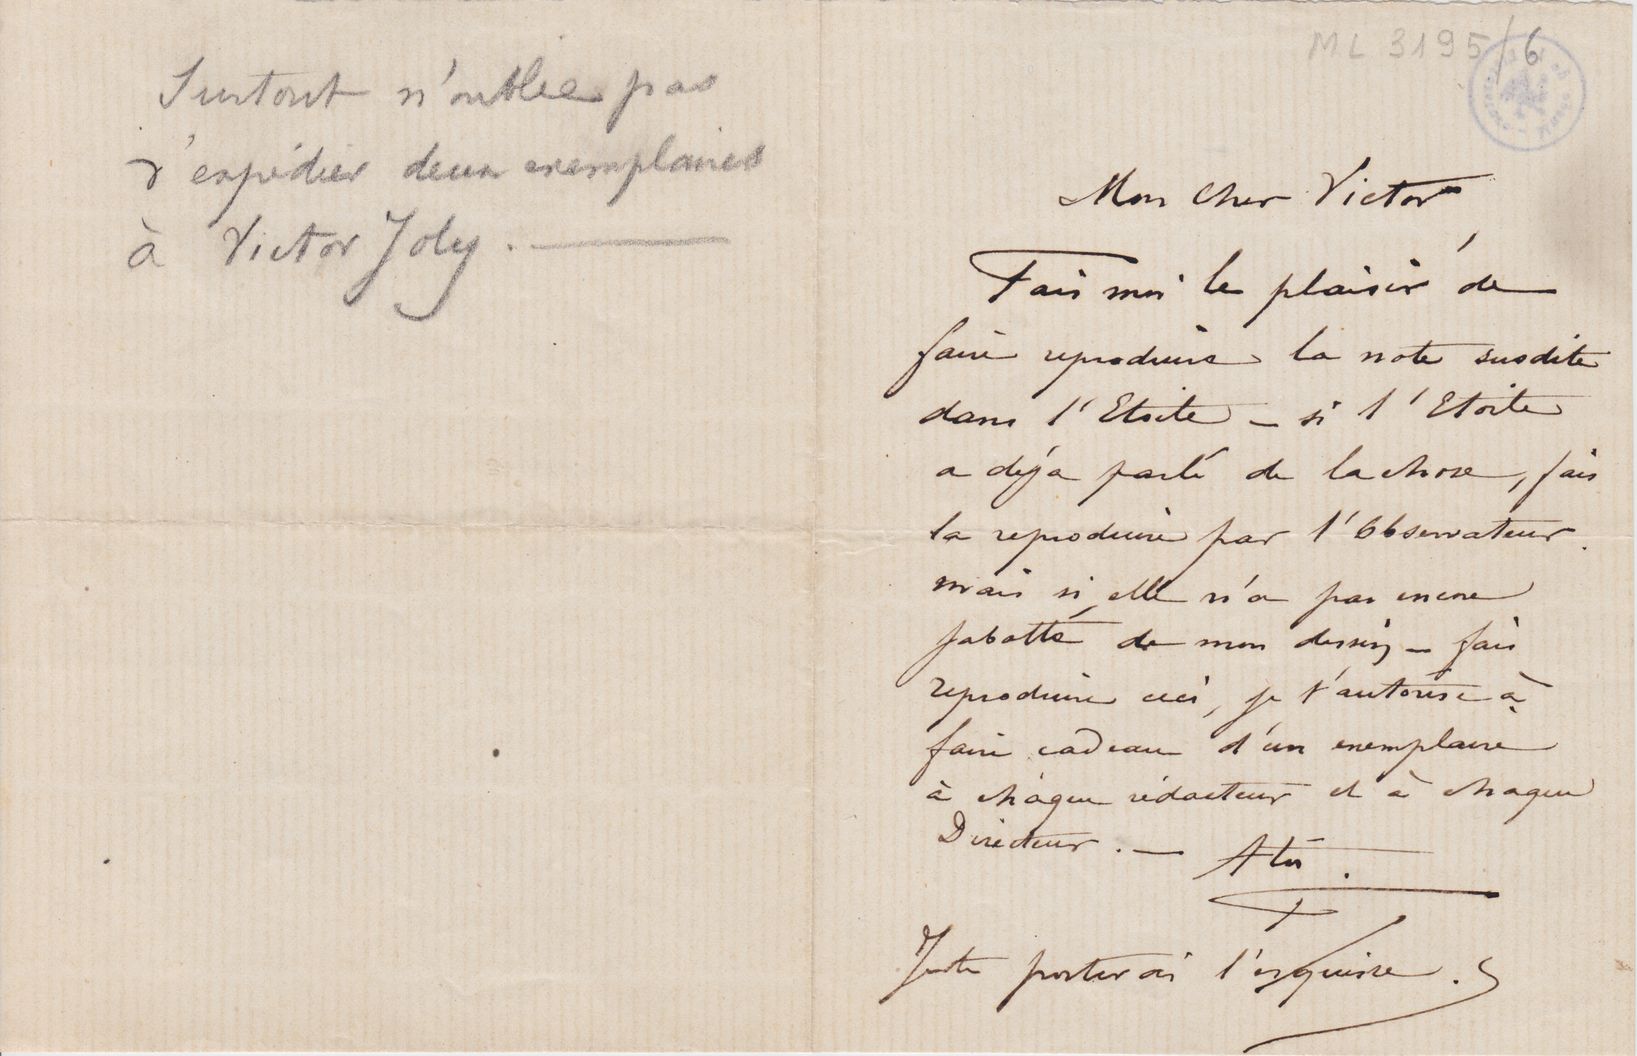 Surtout n'oublie pas
d'expédier deux exemplaires
à Victor Joly. —
ML 3195/6
Mon cher Victor
Fais moi le plaisir de
faire reproduire la note susdite
dans l'Etoile — si l'Etoile
a déja parlé de la chose, fais
la reproduire par l'Observateur.
mais si elle n'a pas encore
jabotté de mon dessin — fais
reproduire ceci, je t'autorise à
faire cadeau d'un exemplaire
à chaque rédacteur et à chaque
Directeur. —
porterai l'esquisse.